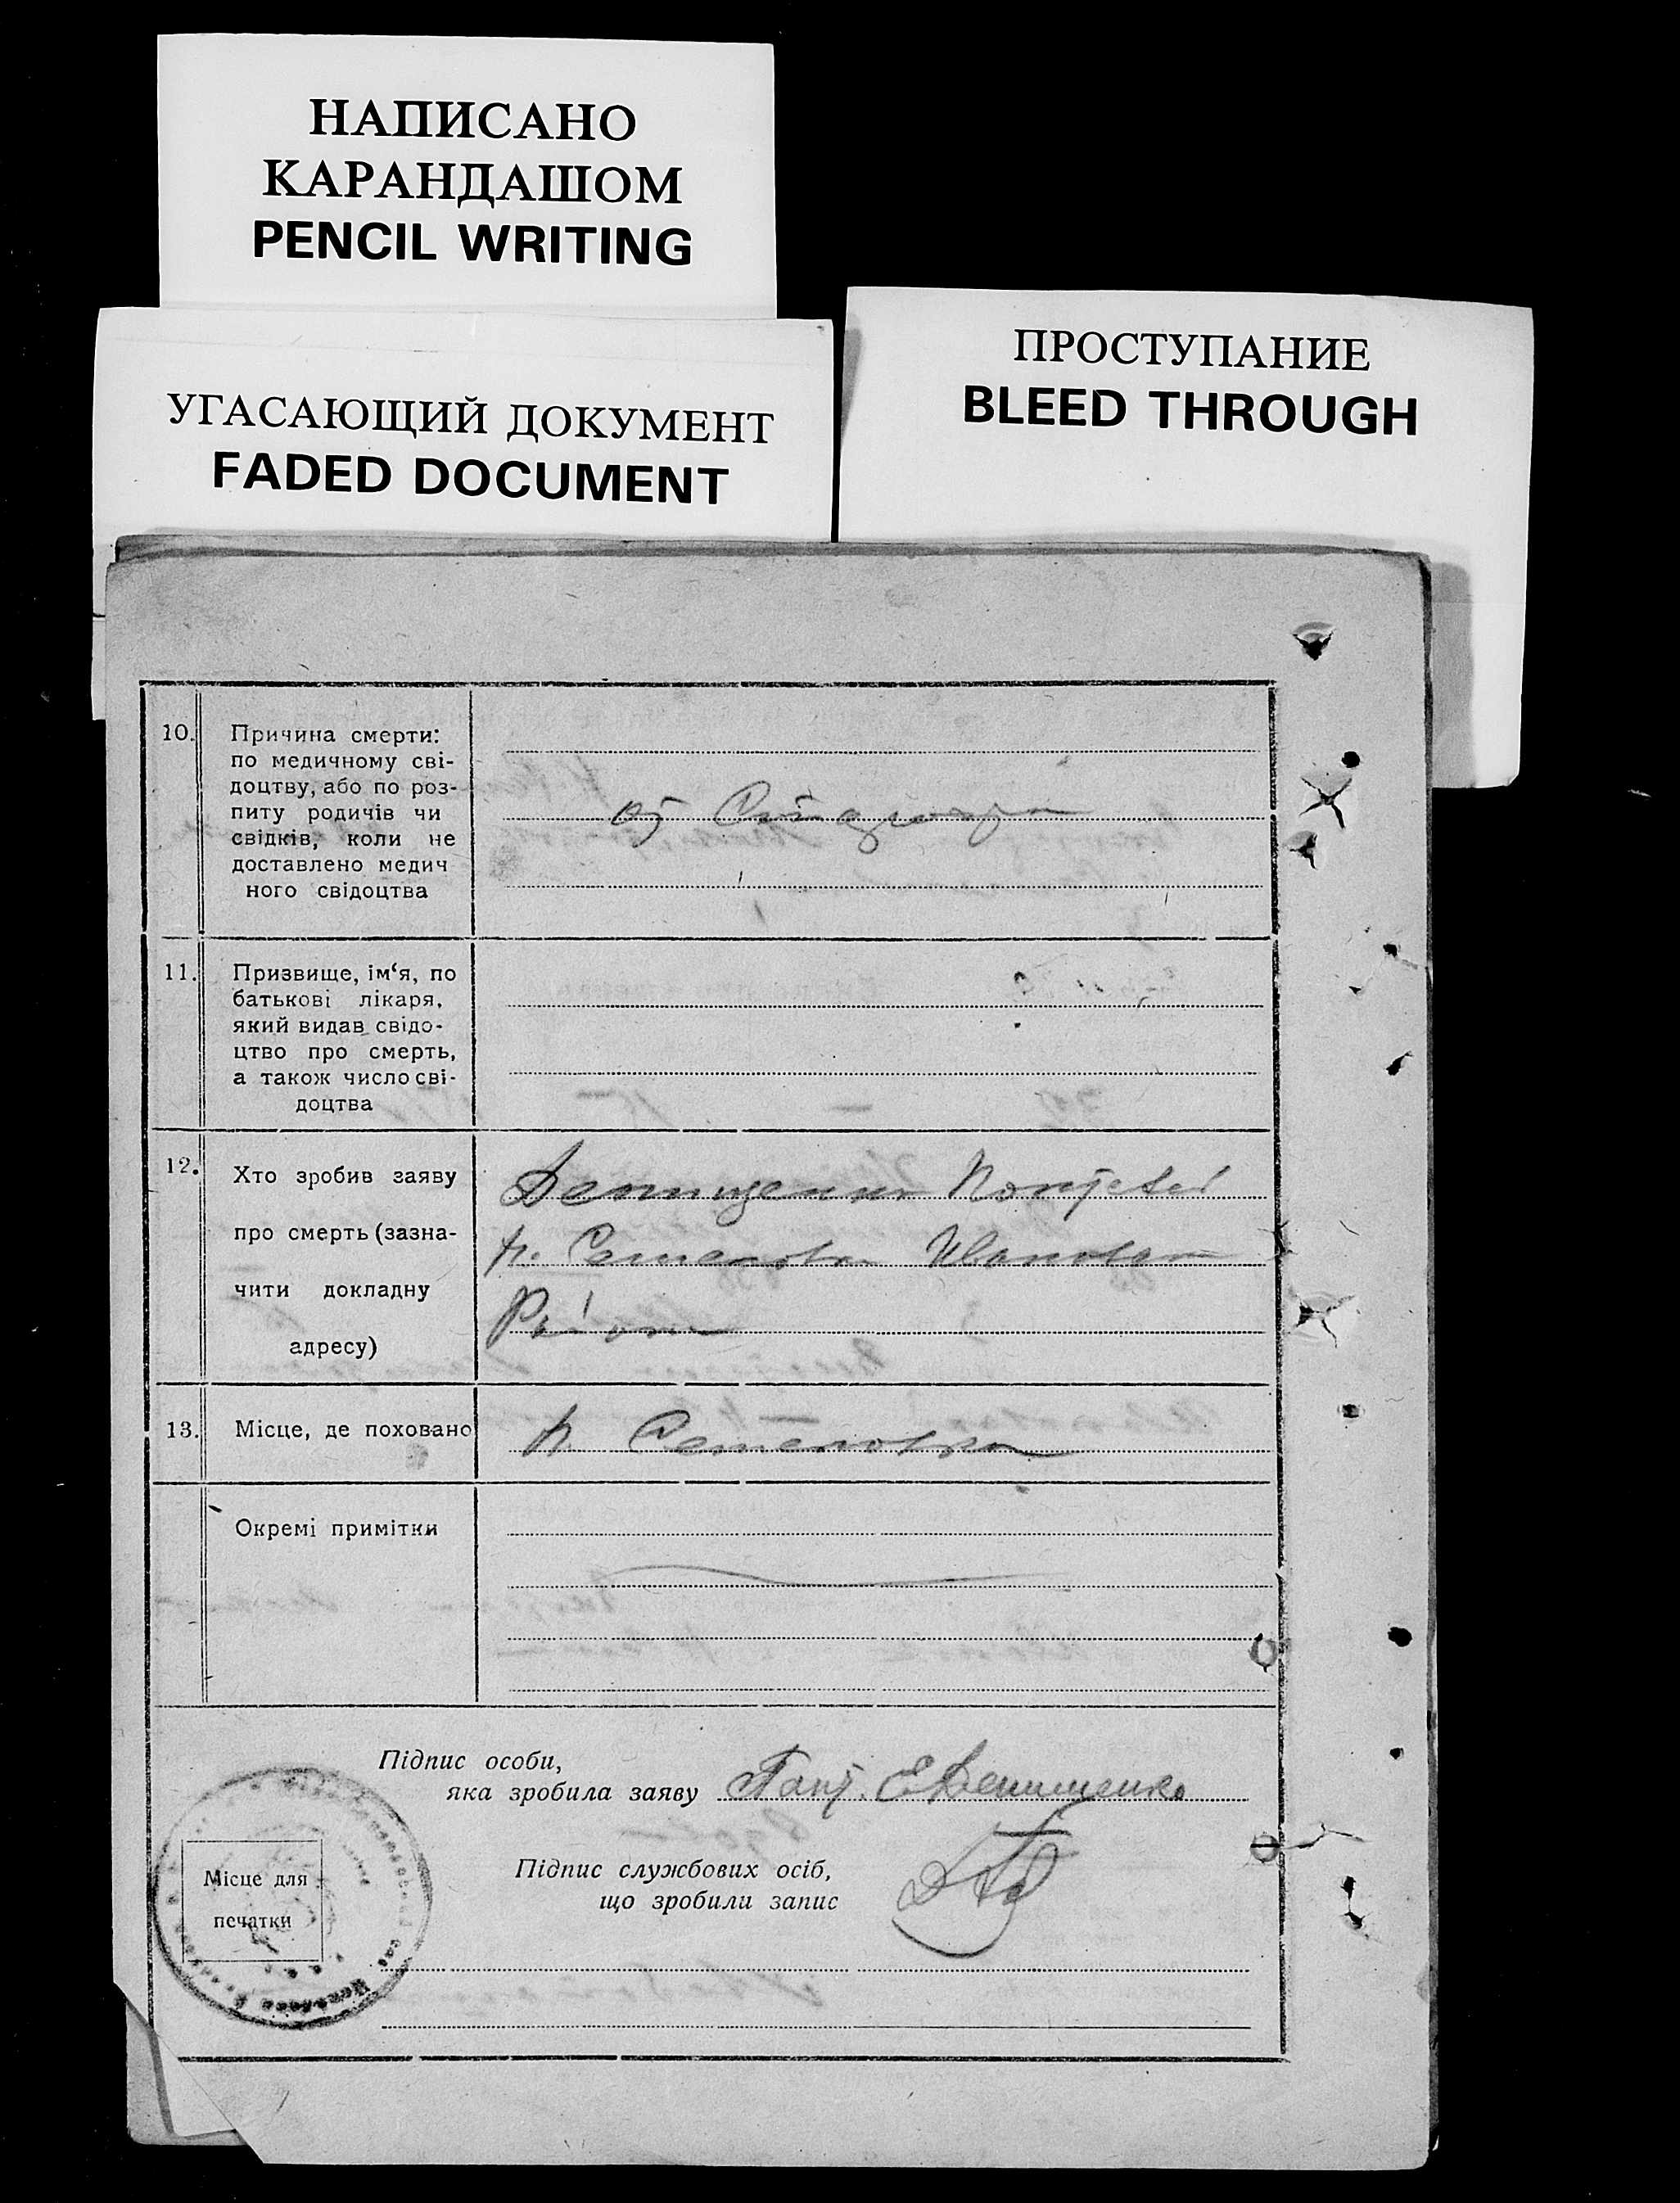 НАПИСАНО
КАРАНДАШОМ
PENCIL WRITING
УГАСАЮЩИЙ ДОКУМЕНТ
FADED DOCUMENT
ПРОСТУПАНИЕ
BLEED THROUGH
10.
Причина смерти:
по медичному сві-
доцтву, або по роз-
питу родичів чи
свідків, коли не
доставлено медич
ного свідоцтва
11.
Призвище, ім‘я, по
батькові лікаря,
який видав свідо-
цтво про смерть,
а також число сві-
доцтва
12.
Хто зробив заяву
про смерть (зазна-
чити докладну
адресу)
с. Семеновка
13.
Місце, де поховано
с. Семеновка
Окремі примітки
Підпис особи,
яка зробила заяву Е Денищенко
Підпис службових осіб,
що зробили запис
Місце для
печатки